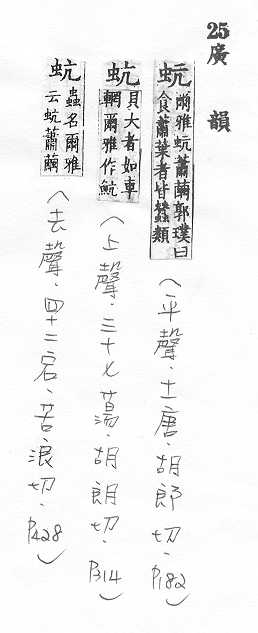 25廣韻
蚢
爾雅蚢蕭繭郭璞曰
食蕭葉者皆蠶類
(平聲.十一唐.胡郎切.P182)
蚢
貝大者如車
輞爾雅作魧
(上聲.三十七蕩.胡朗切.P314)
蚢
蟲名爾雅
云蚢蕭繭
(去聲.四十二宕.苦浪切.P428)